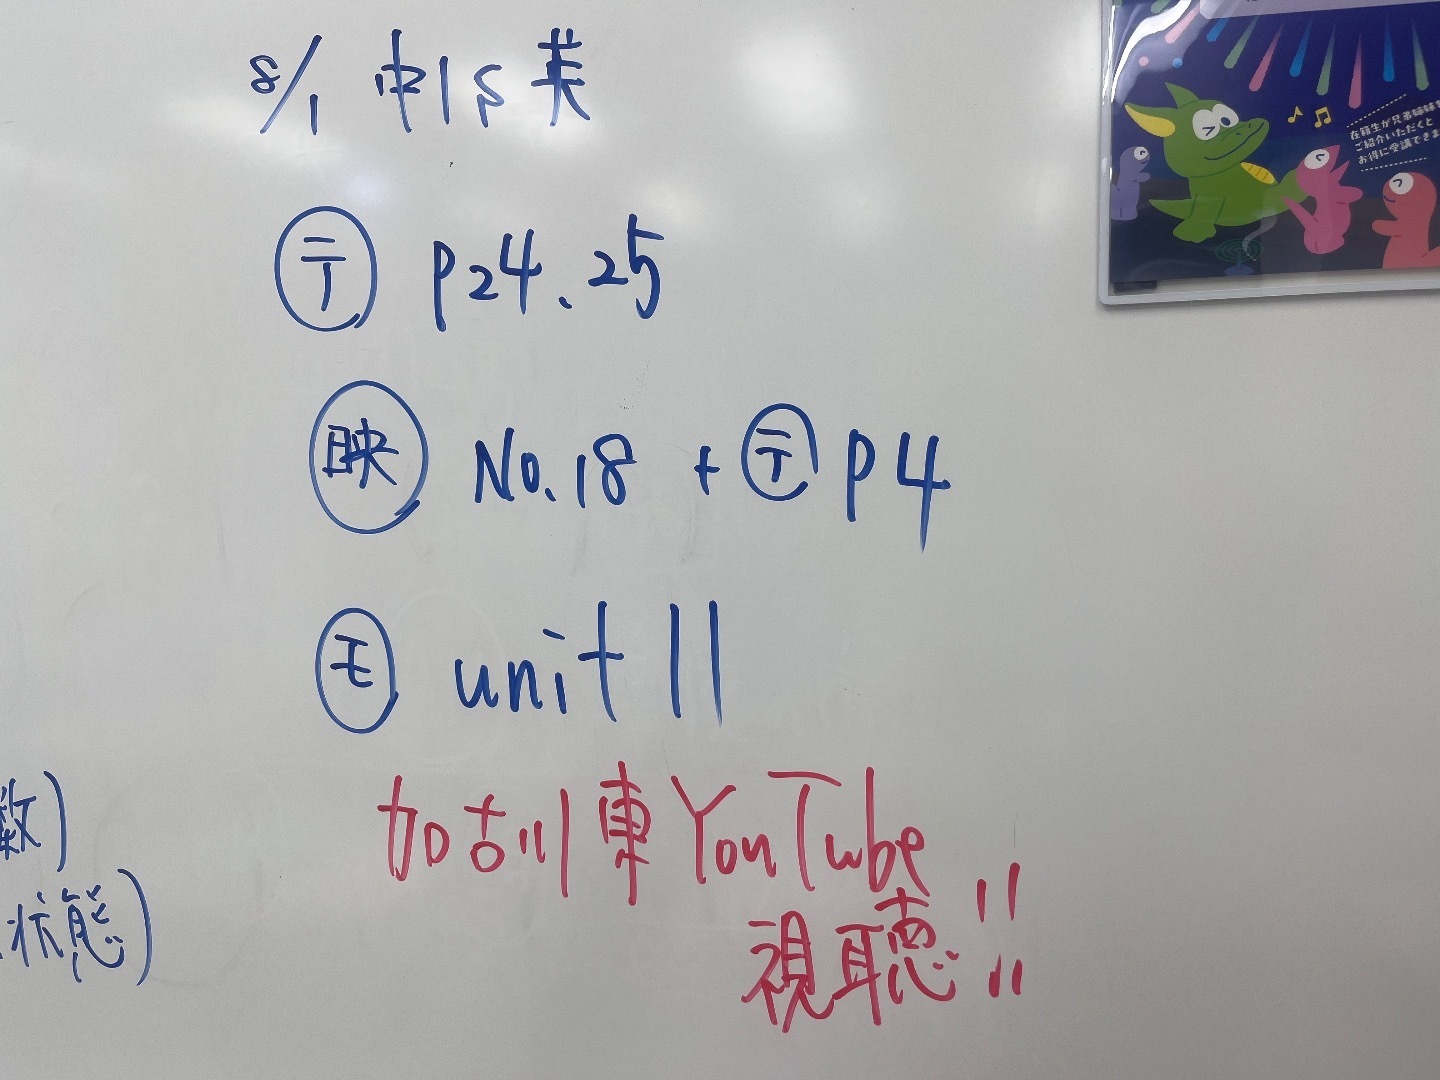 8/1 中1S英
㋢ P24、25
映 No.18 + ㋢ P4
モ unit 11
加古川東YouTube
視聴!!
数)
状態)
在籍生が兄弟姉妹を
ご紹介いただくと
お得に受講できま